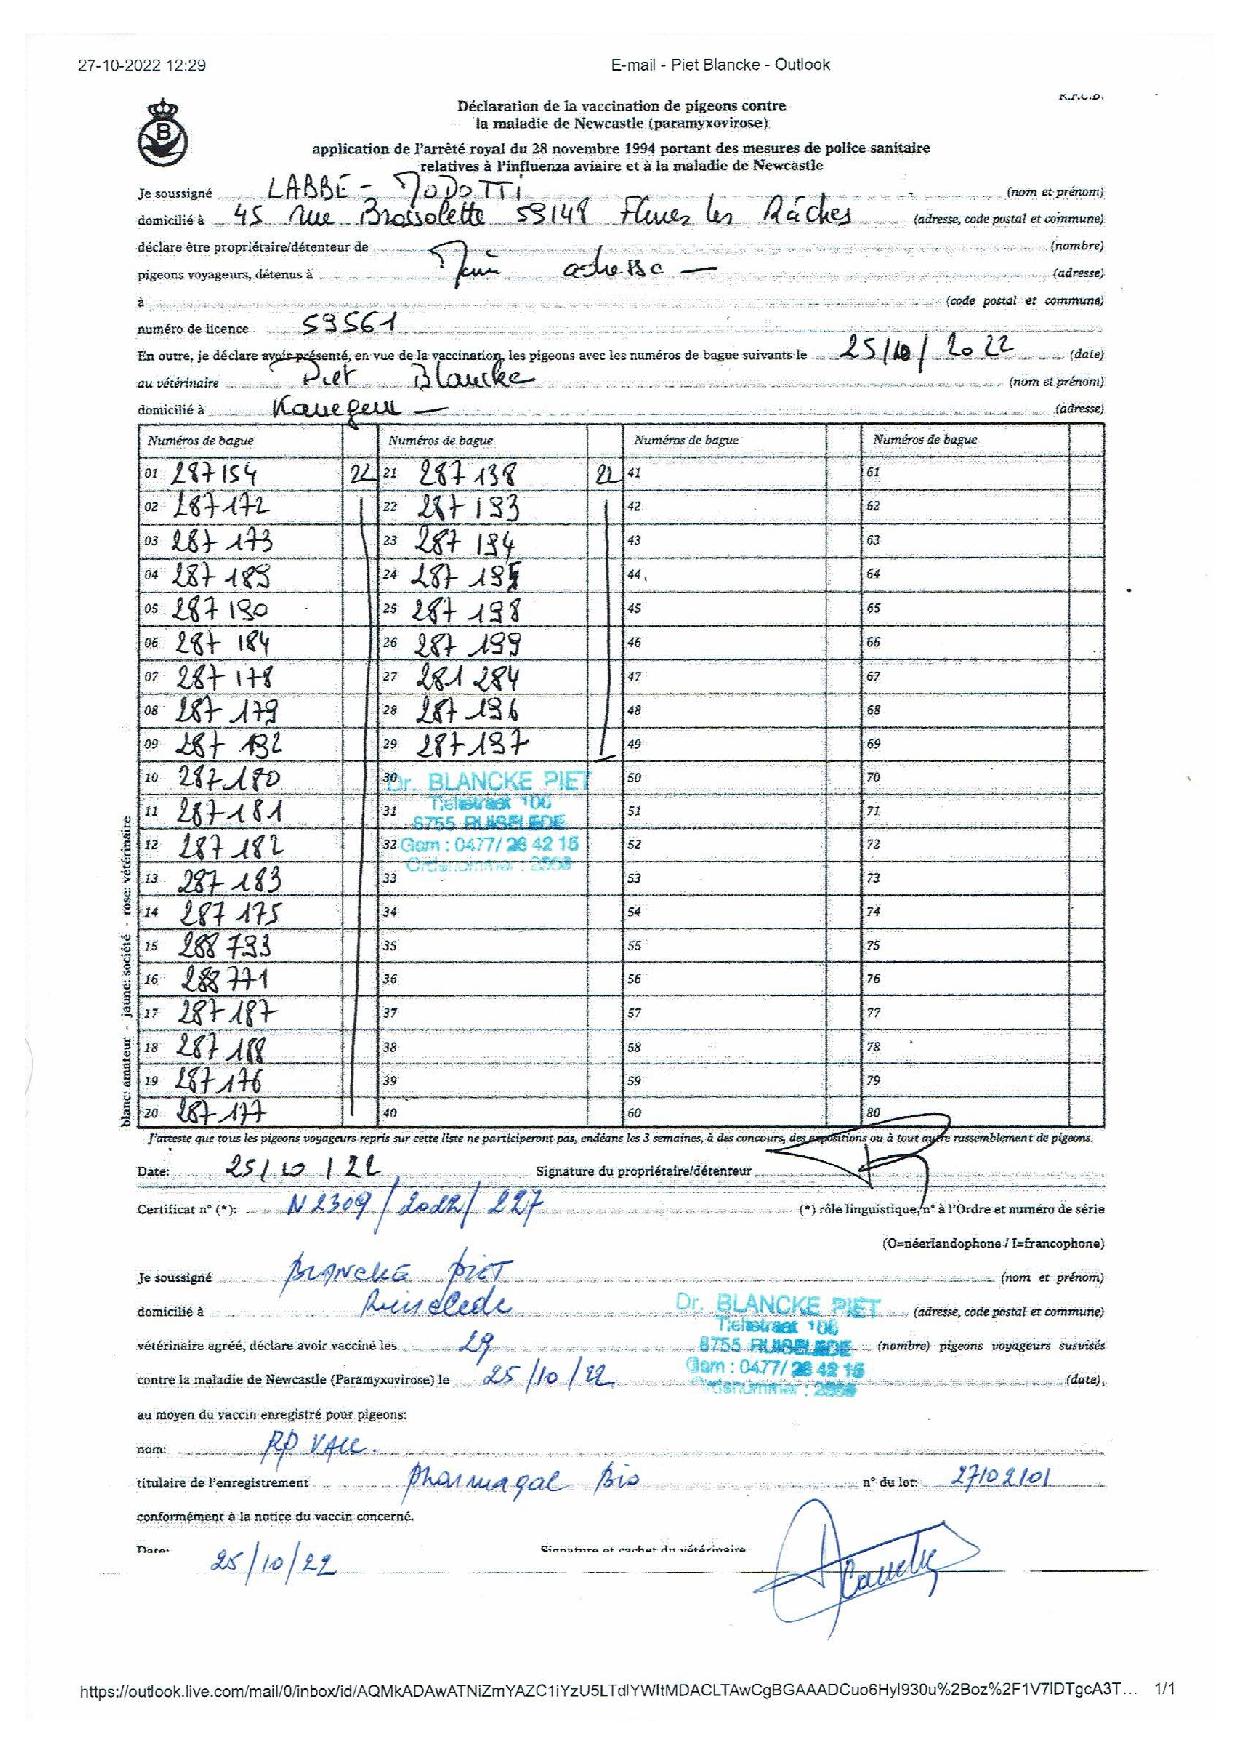 27-10-2022 12:29
E-mail - Piet Blancke - Outlook
Déclaration de la vaccination de pigeons contre
la maladie de Newcastle (paramyxovirose)
application de l'arrêté royal du 28 novembre 1994 portant des mesures de police sanitaire
relatives à l'influenza aviaire et à la maladie de Newcastle
B
Je soussigné LABBÉ - MODOTTI (nom et prénom)
domicilié à 45 rue Brossolette 59148 Flines les Râches (adresse, code postal et commune)
déclare être propriétaire/détenteur de (nombre)
pigeons voyageurs, détenus à adresse — (adresse)
à (code postal et commune)
numéro de licence 59561
En outre, je déclare avoir présenté, en vue de la vaccination, les pigeons avec les numéros de bague suivants le 25/10/2022 (date)
au vétérinaire Piet Blancke (nom et prénom)
domicilié à Kanegem — (adresse)
Numéros de bague Numéros de bague Numéros de bague Numéros de bague
01 287154 22 21 287 138 22 41 61
02 287172 22 287 193 42 62
03 287 173 23 287 194 43 63
04 287 189 24 287 195 44 64
05 287 190 25 287 198 45 65
06 287 184 26 287 199 46 66
07 287 178 27 281 284 47 67
08 287 179 28 287 196 48 68
09 287 192 29 287 197 49 69
10 287 180 30 50 70
11 287 181 31 51 71
12 287 182 32 52 72
13 287 183 33 53 73
14 287 175 34 54 74
15 288 793 35 55 75
16 288 771 36 56 76
17 287 187 37 57 77
18 287 188 38 58 78
19 287 176 39 59 79
20 287 177 40 60 80
Dr. BLANCKE PIET
Tieltstraat 106
8755 RUISELEDE
Gsm : 0477/ 28 42 15
blanc: amateur - jaune: société - rose: vétérinaire
J'atteste que tous les pigeons voyageurs repris sur cette liste ne participeront pas, endéans les 3 semaines, à des concours, des expositions ou à tout autre rassemblement de pigeons.
Date: 25/10/22 Signature du propriétaire/détenteur
Certificat n° (*): N 2309/2022/227 (*) rôle linguistique, n° à l'Ordre et numéro de série
(O=néerlandophone / I=francophone)
Je soussigné BLANCKE PIET (nom et prénom)
domicilié à Ruiselede (adresse, code postal et commune)
Dr. BLANCKE PIET
Tieltstraat 106
8755 RUISELEDE
Gsm : 0477/ 28 42 15
vétérinaire agréé, déclare avoir vacciné les 29 (nombre) pigeons voyageurs susvisés
contre la maladie de Newcastle (Paramyxovirose) le 25/10/22 (date),
au moyen du vaccin enregistré pour pigeons:
nom: RP VACC.
titulaire de l'enregistrement Pharmagal Bio n° du lot: 27102101
conformément à la notice du vaccin concerné.
Date: 25/10/22 Signature et cachet du vétérinaire
https://outlook.live.com/mail/0/inbox/id/AQMkADAwATNiZmYAZC1iYzU5LTdlYWItMDACLTAwCgBGAAADCuo6Hyl930u%2Boz%2F1V7IDTgcA3T... 1/1